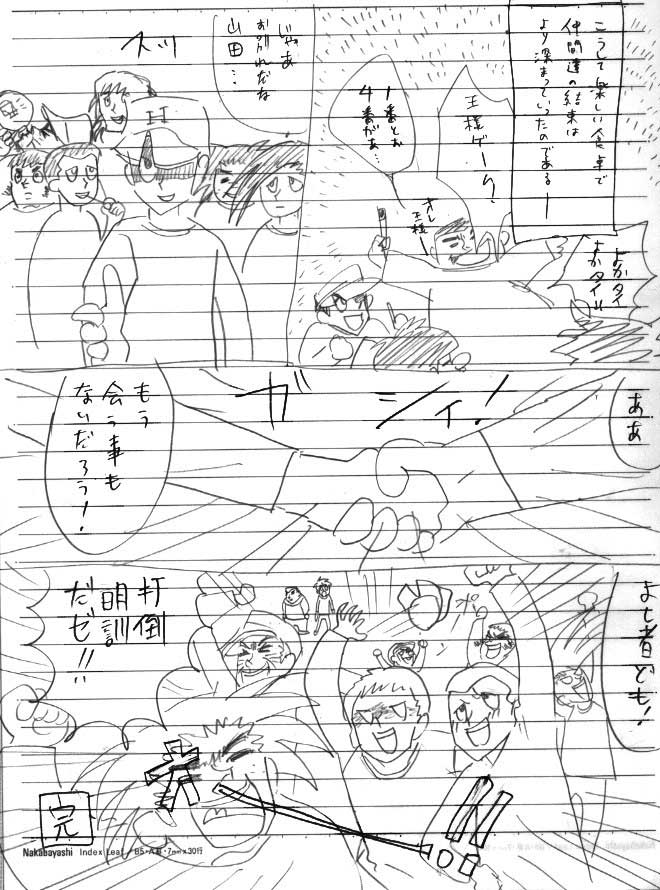 こうして楽しい食卓で
仲間達の結束は
より深まっていったのであるー
王様ゲーク?
1番とお
4番がぁ…
オレ
王様ー
よかタイ
よかタイ!!
じゃあ
お別れだな
山田…
スッ
H
ああ
ガシィ!
もう
会う事も
ないだろう!
よし者ども!
打倒
明訓
だゼ!!
完
Nakabayashi Index Leaf / B5・A罫・7mm×30行